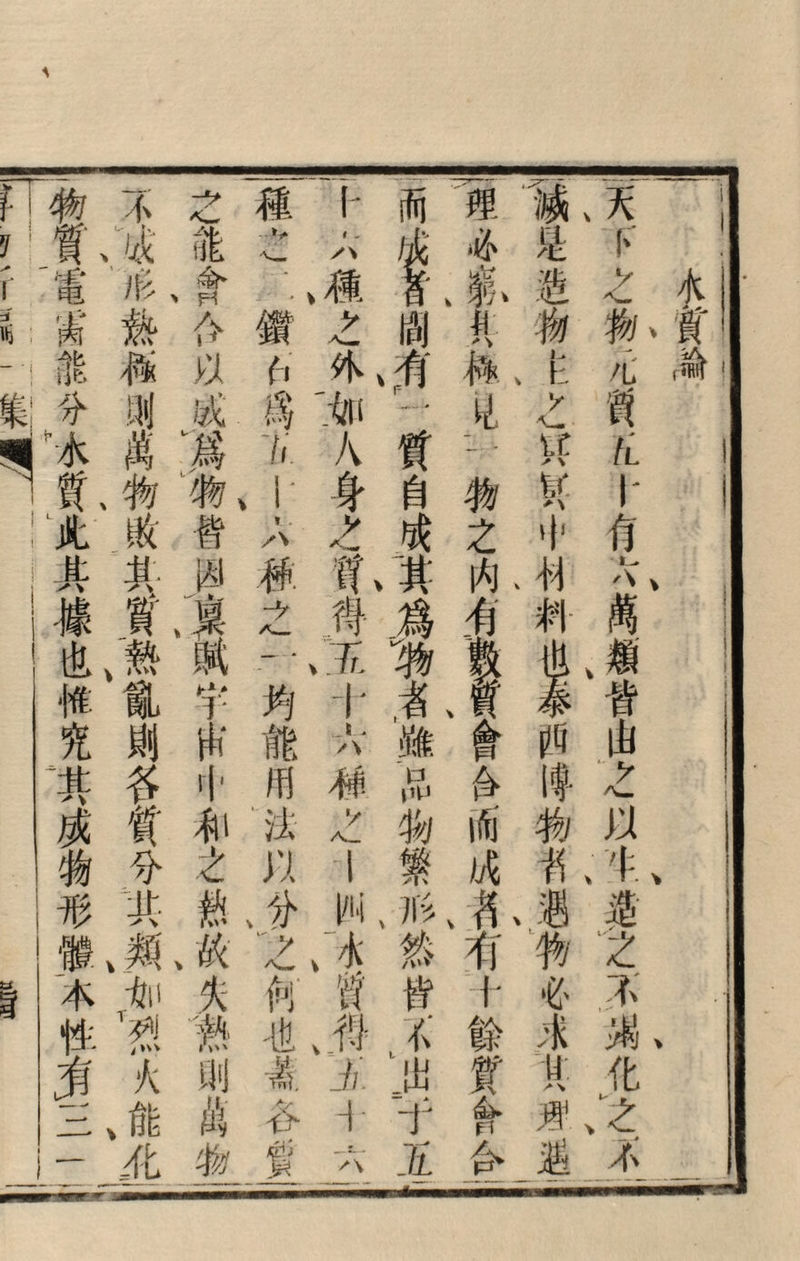 水質論
天下之物、元質五十有六、萬類皆由之以生、造之不竭、化之不
滅、是造物主之冥冥中材料也、泰西博物者、遇物必求其理、遇
理必窮其極、見一物之內、有數質會合而成者、有十餘質會合
而成者、間有一質自成其爲物者、雖品物繁形、然皆不出于五
十六種之外、如人身之質、得五十六種之十四、水質得五十六
種之二、鑽石爲五十六種之一、均能用法以分之、何也、蓋各質
之能會合以成爲物、皆因稟賦宇宙中和之熱、故失熱則萬物
不成形、熱極則萬物敗其質、熱亂則各質分其類、如烈火能化
物質、電氣能分水質、此其據也、惟究其成物形體、本性有三、一
博物新編一集